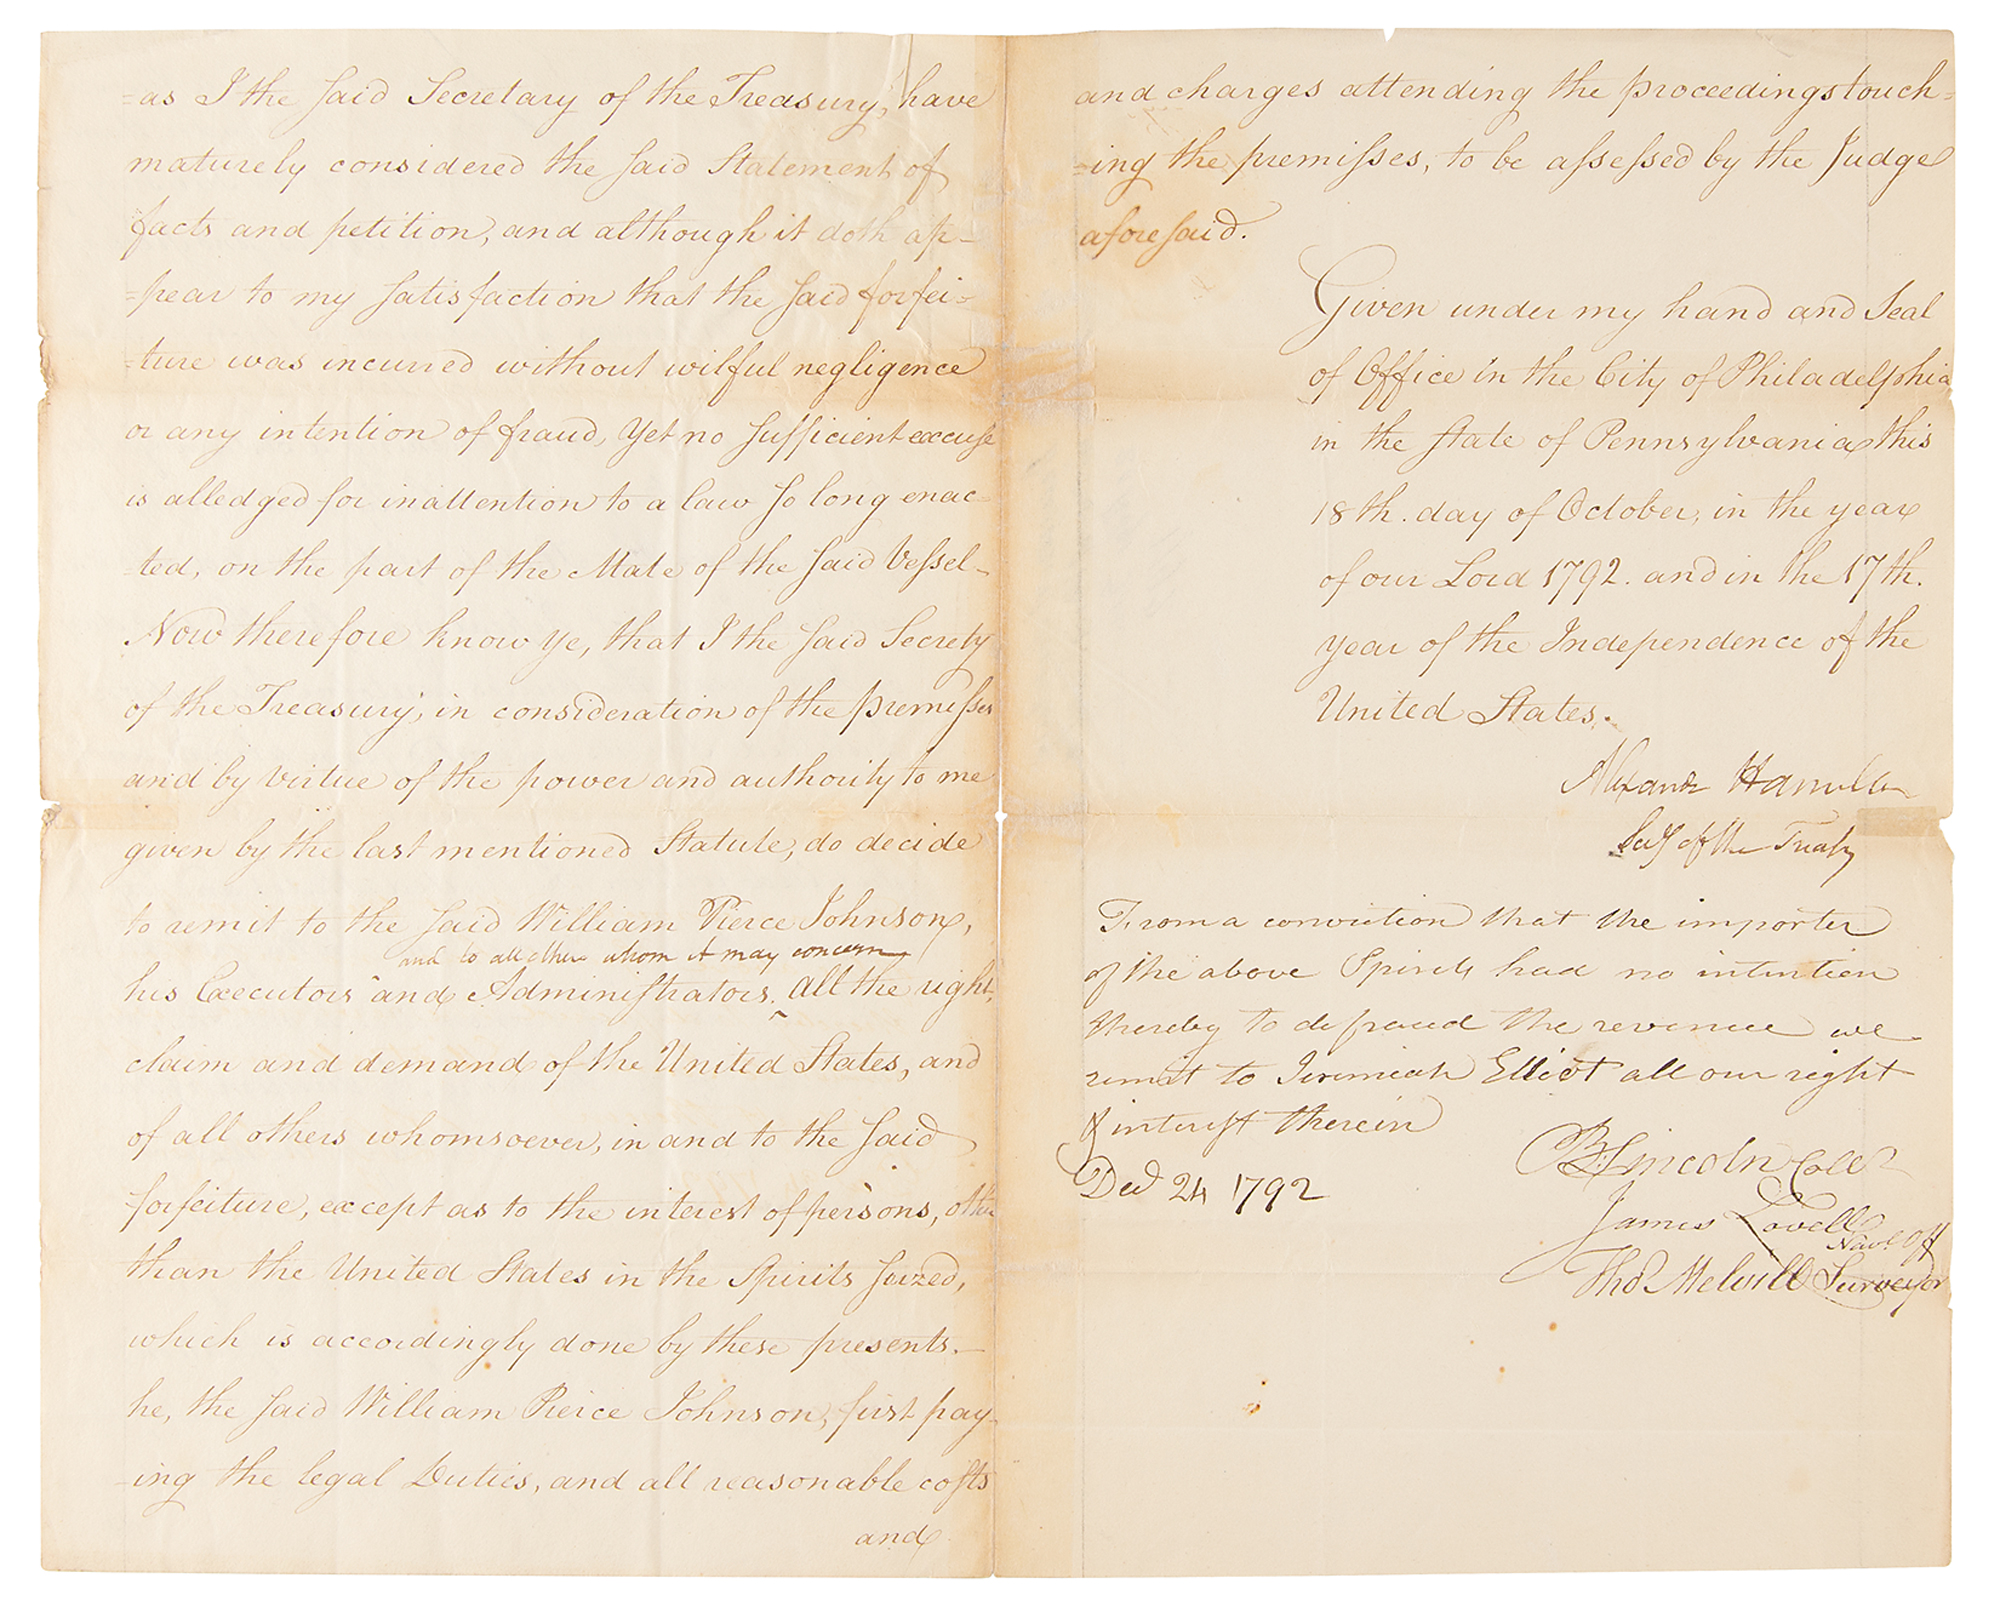 =as I the said Secretary of the Treasury, have
maturely considered the said Statement of
facts and petition, and although it doth ap-
=pear to my satisfaction that the said forfei-
=ture was incurred without wilful negligence
or any intention of fraud, Yet no sufficient excuse
is alledged for inattention to a law so long enac-
-ted, on the part of the Mate of the said Vessel-
Now therefore know ye, that I the said Secrety
of the Treasury, in consideration of the premisses
and by virtue of the power and authority to me
given by the last mentioned Statute, do decide
to remit to the said William Pierce Johnson,
and to all others whom it may concern
his Executors and Administrators, ‸ all the right,
claim and demand of the United States, and
of all others whomsoever, in and to the said
forfeiture, except as to the interest of persons, other
than the United States in the Spirits seized,
which is accordingly done by these presents.—
he, the said William Pierce Johnson, first pay-
-ing the legal Duties, and all reasonable costs
and
and charges attending the proceedings touch=
=ing the premisses, to be assessed by the Judge
aforesaid.
Given under my hand and Seal
of Office in the City of Philadelphia,
in the State of Pennsylvania this
18th. day of October, in the year
of our Lord 1792. and in the 17th.
year of the Independence of the
United States.
Alexander Hamilton
Secy of the Treasy
From a conviction that the importer
of the above Spirits had no intention
thereby to defraud the revenue we
remit to Jeremiah Elliot all our right
& interest therein
Decr 24 1792
B. Lincoln Coller
James Lovell
Navl Off
Thos Melvill Surveyor